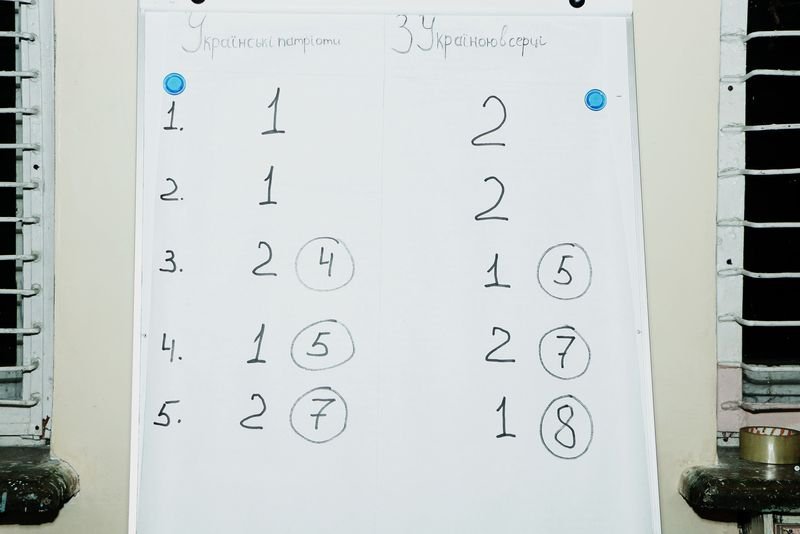 Українські патріоти З Україною в серці
1. 1 2
2. 1 2
3. 2 4 1 5
4. 1 5 2 7
5. 2 7 1 8